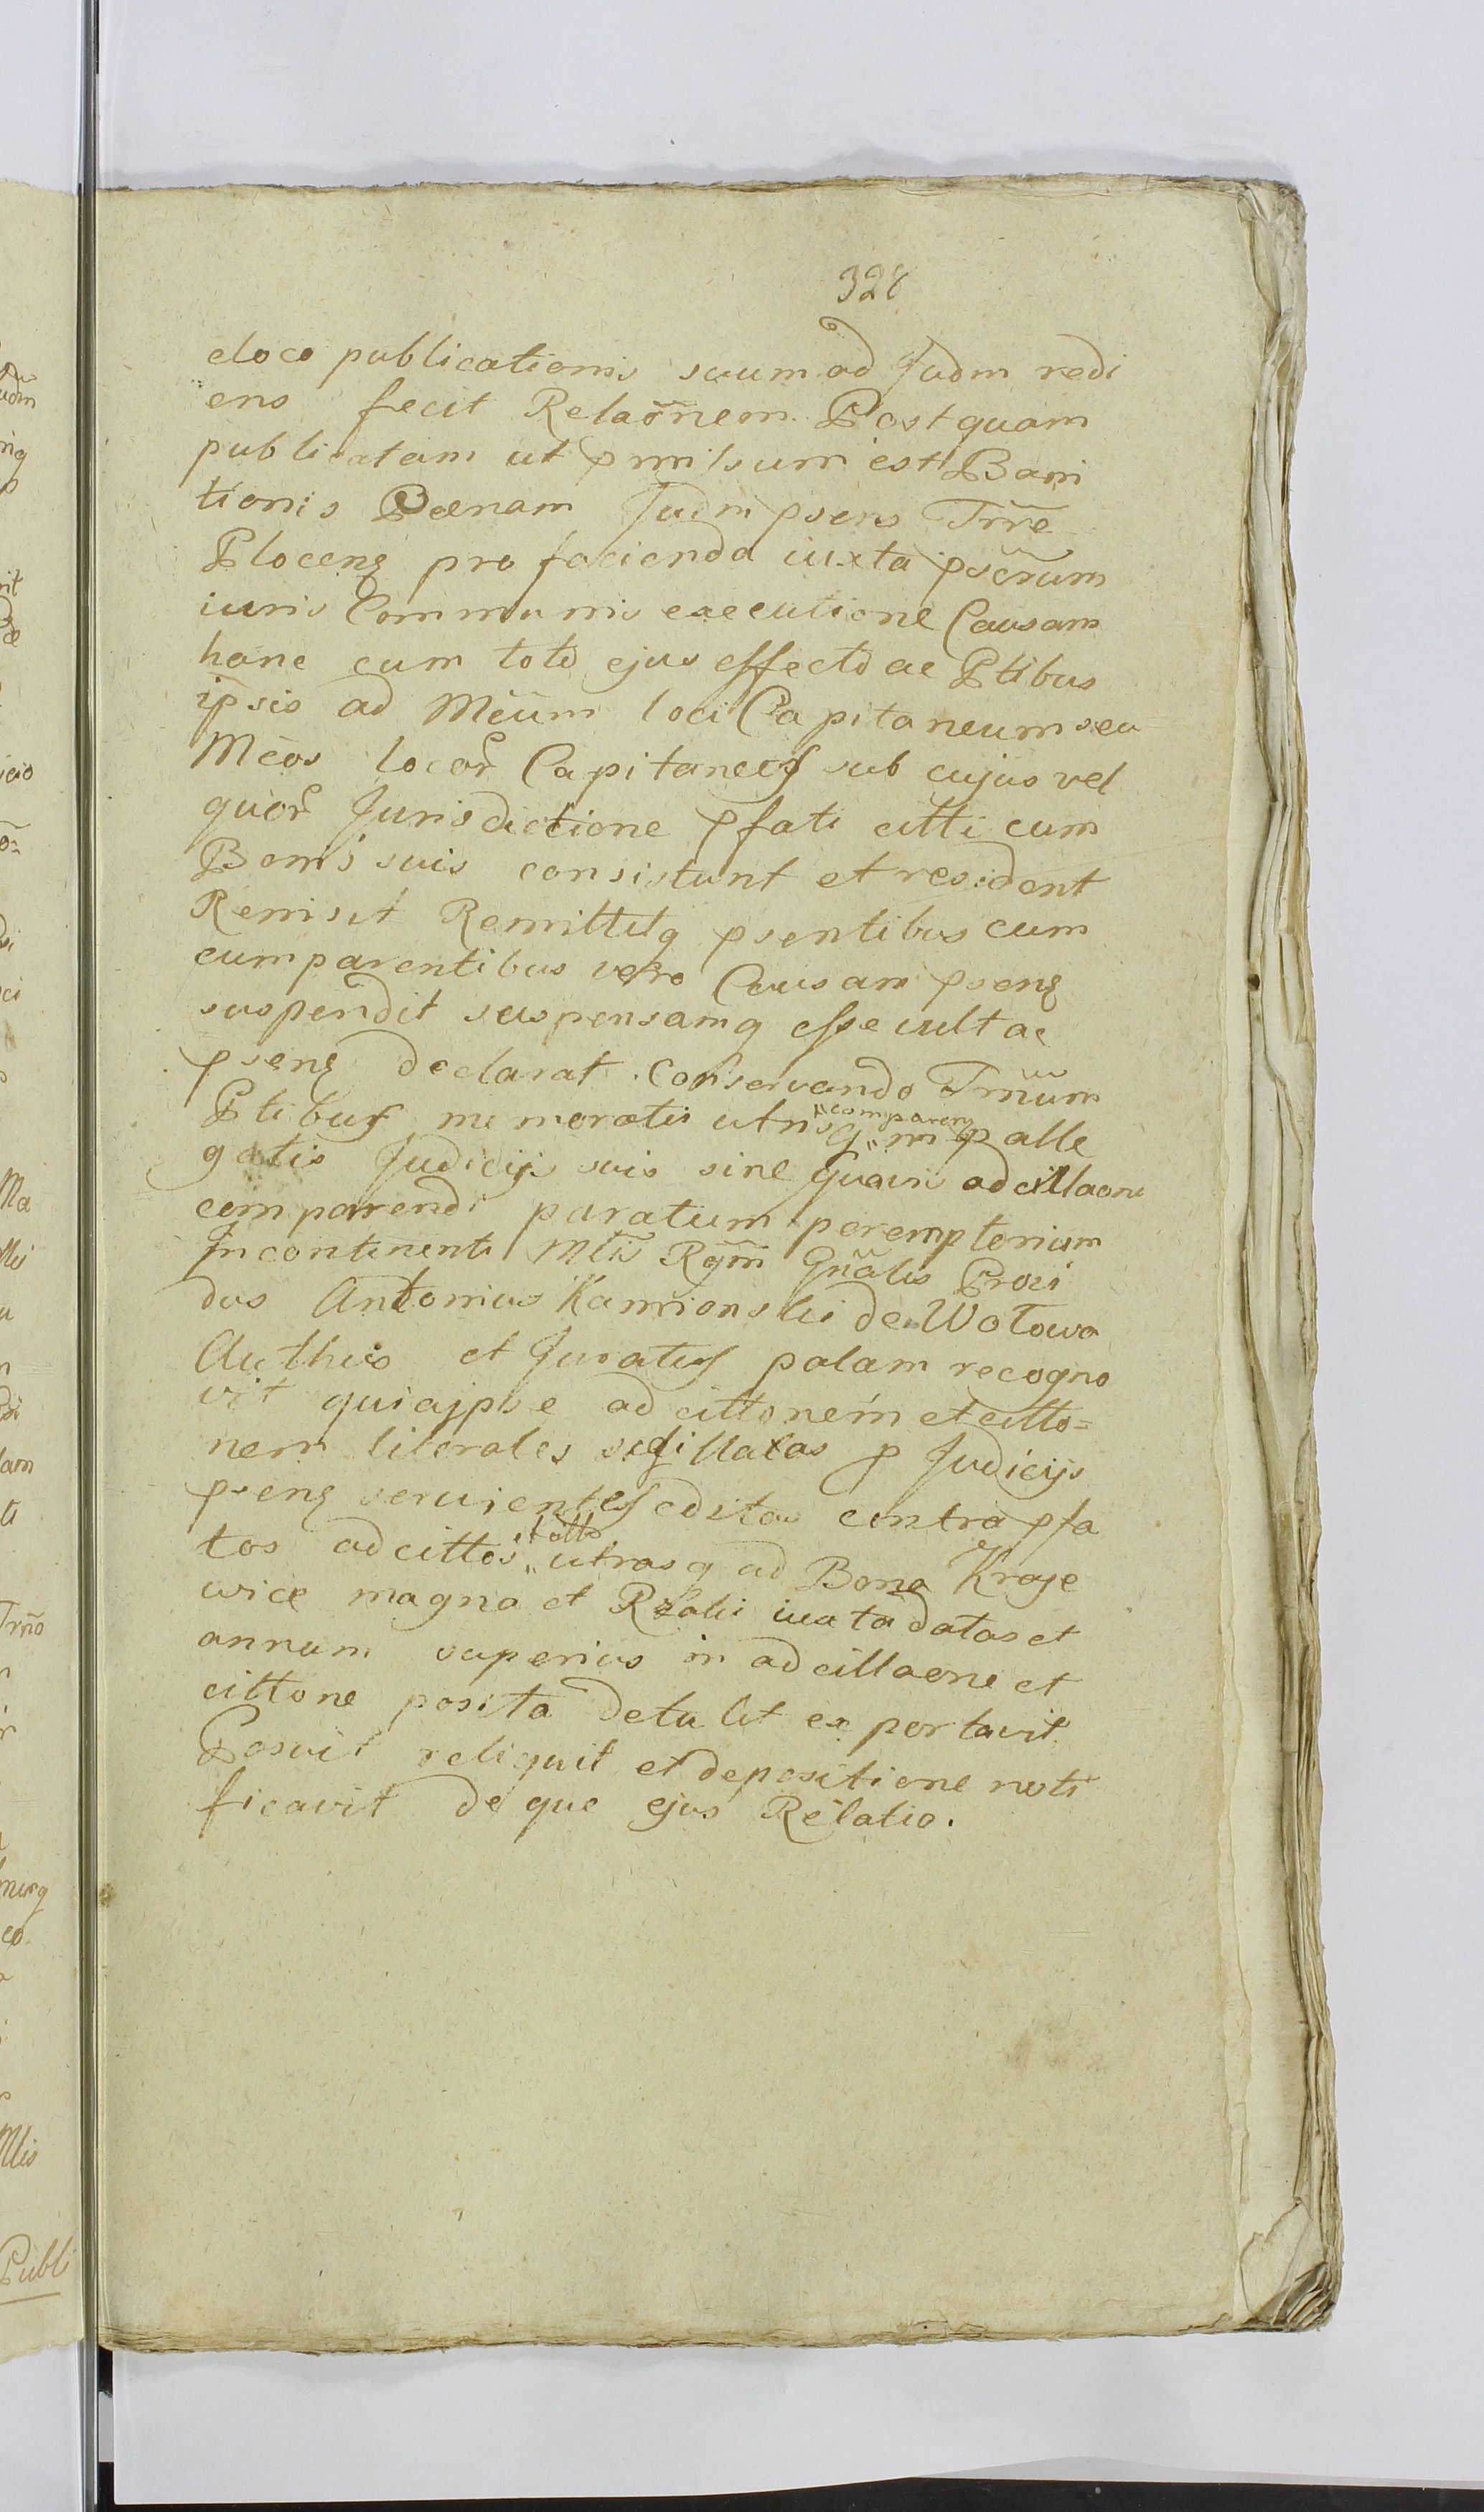 328
eloco publicationis suum ad Judm redi
ens fecit Relaõnem Postquam
publicatam ut pmissum est Bani
tionis Pœnam Judm psens Trre
Plocens pro facienda iuxta pscrum
iuris Communis executione Causam
hanc cum toto ejus effecto ac Ptibus
ipsis ad Meum loci Capitaneum seu
Meos locor Capitaneos sub cujus vel
quor Jurisdictione pfati citti cum
Bonis suis consistunt et resident
Remisit Remittitq psentibus cum
cumparentibus vero Causam psens
suspendit suspensamq esse vult ac
psens declarat conservando Trmum
Ptibus memoratis utrisq comparen in palle
gatis Judicijs suis sine adcittaone
comparendi paratum peremptorium
Incontinenti Mtis Rgm Gnalis Provi
dus Antonius Kamionski de Wotowa
Authus et Juratus palam recogno
vit quia ipse adcittonem et citto=
nem literales sigillatas p Judicijs
psens servientes editas contra pfa
tos adcittos et citto utrasq ad Bona Kraje
wice magna et Rzalii iuxta datas et
annum superius in adcittaone et
cittone posita detulit exportavit
Posuit reliquit et depositione noti
ficavit de que ejus Relatio.